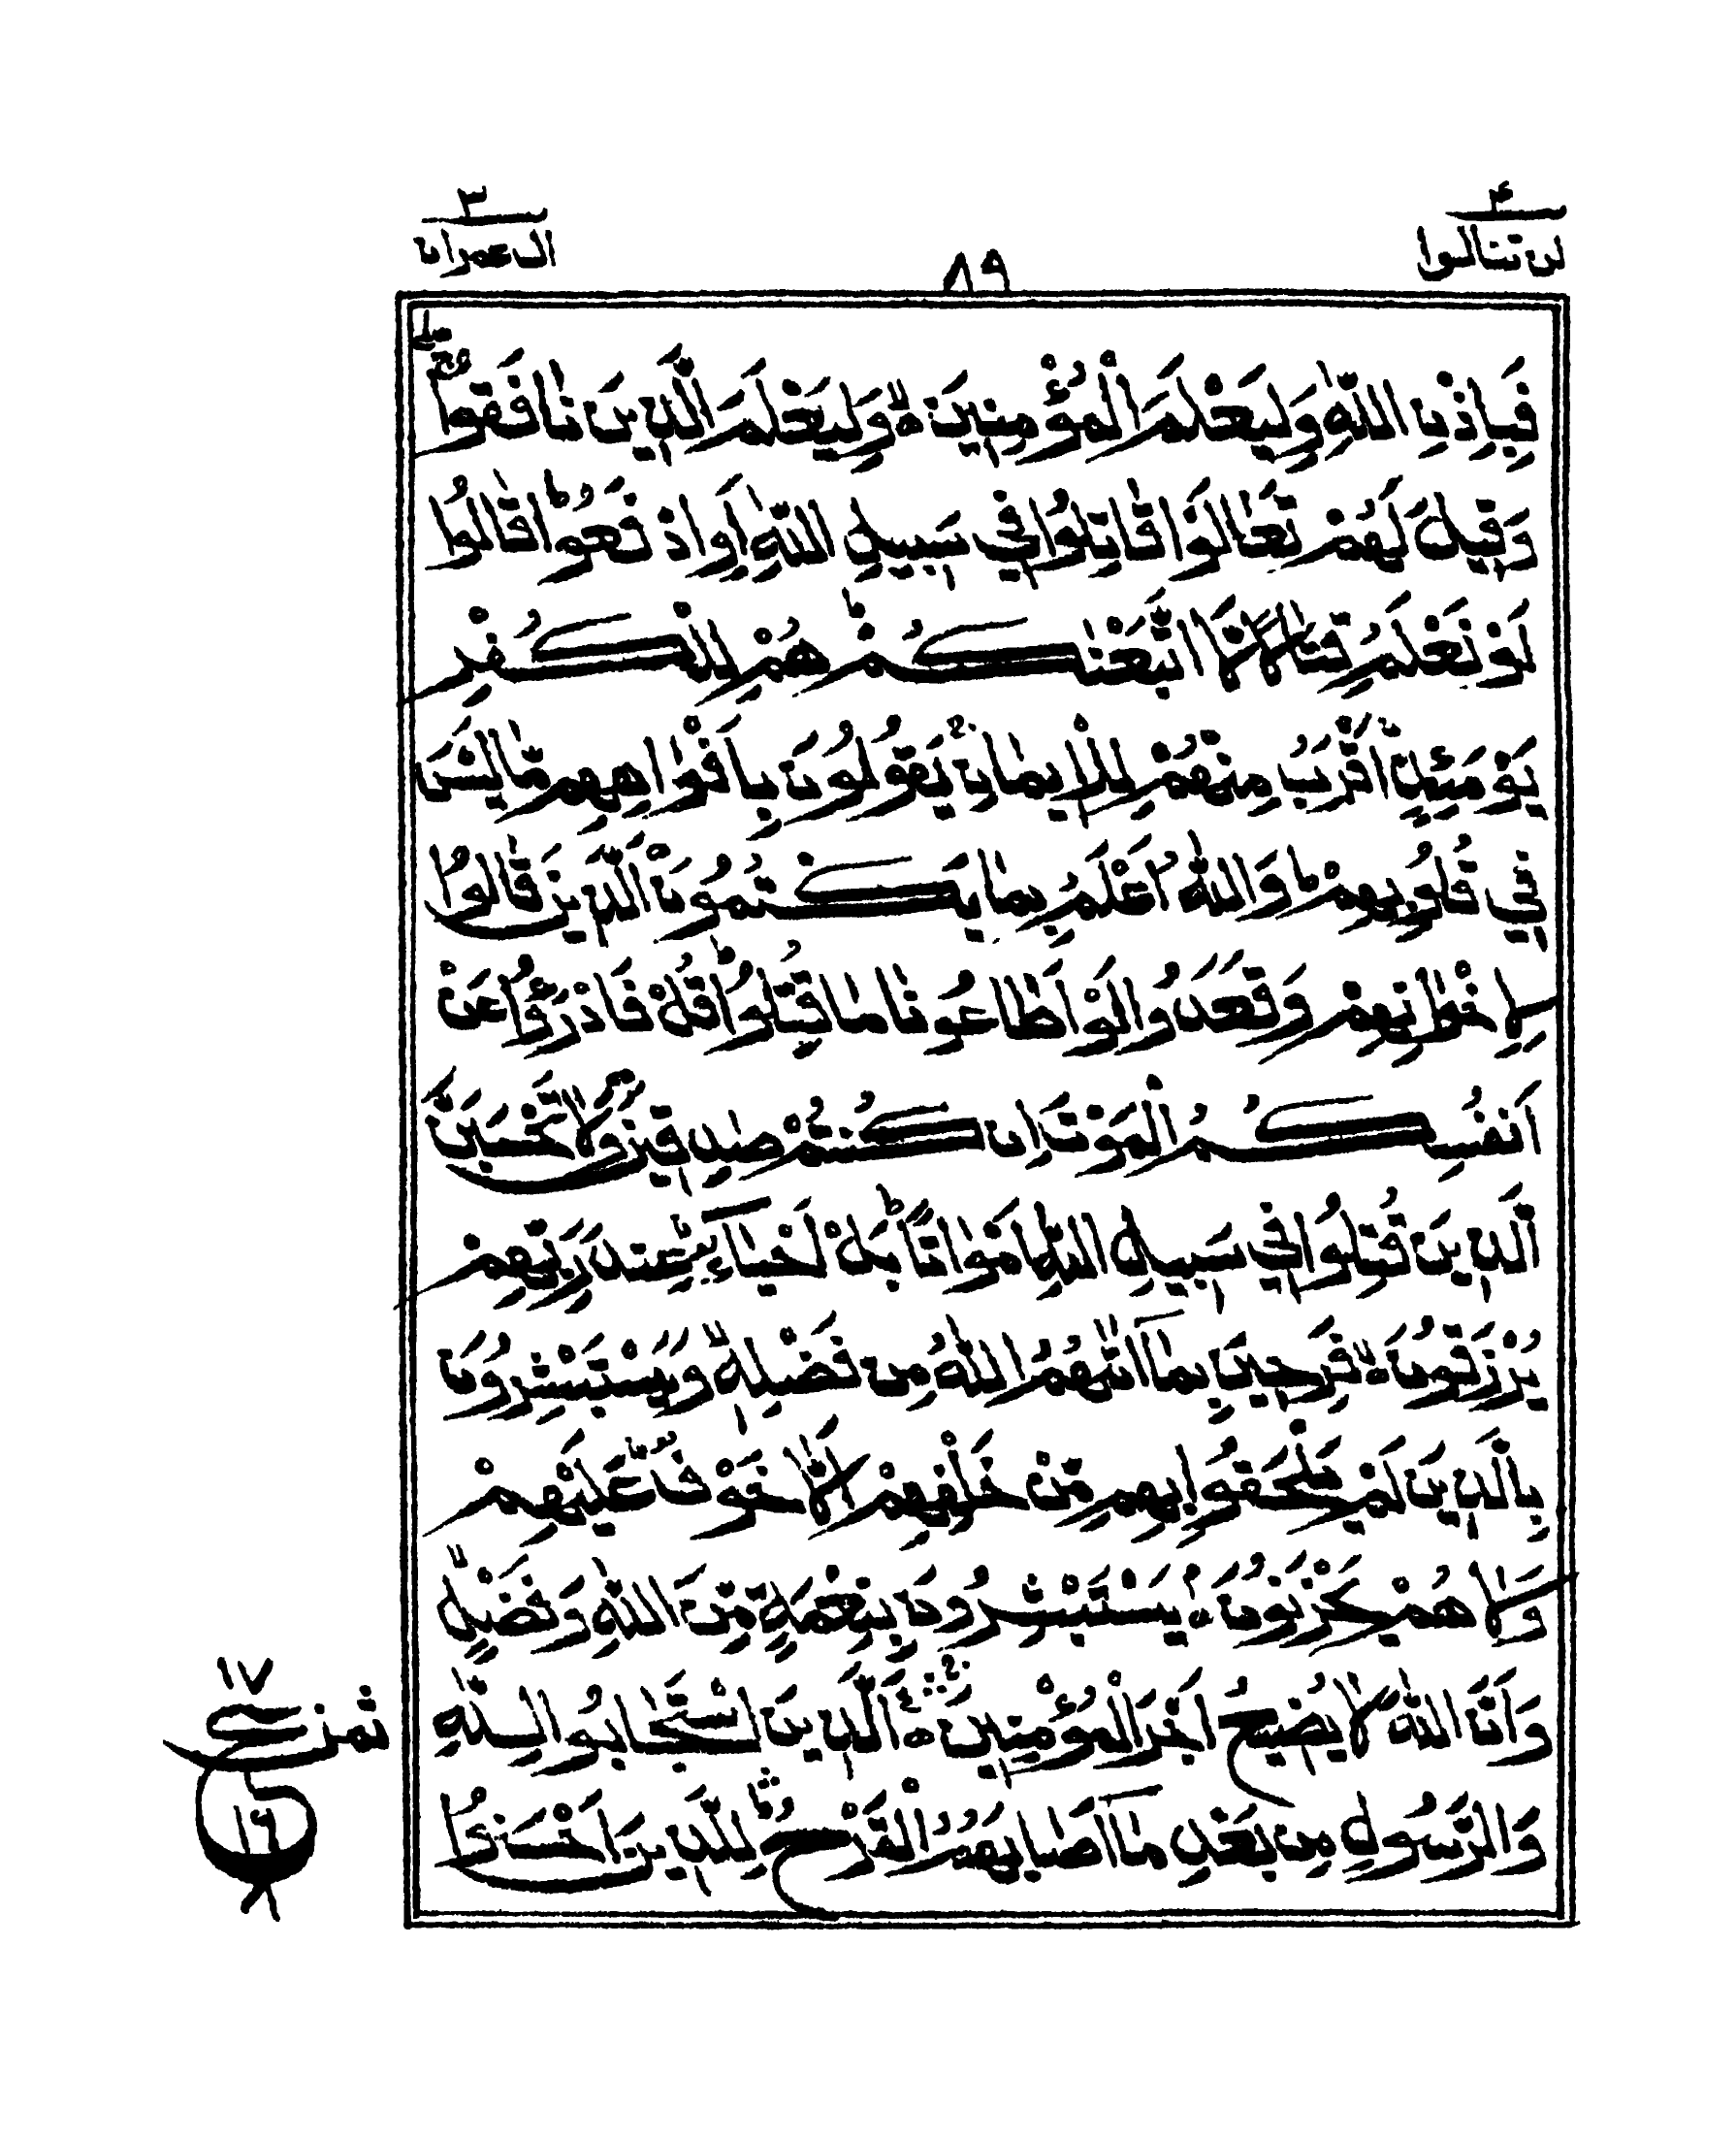 لن تنالوا ٤
٨٩
ال عمران ٣
فَبِاِذْنِ اللّٰهِ وَلِيَعْلَمَ الْمُؤْمِنِيْنَ ۙ وَلِيَعْلَمَ الَّذِيْنَ نَافَقُوْا ۖۚ
وَقِيْلَ لَهُمْ تَعَالَوْا قَاتِلُوْا فِيْ سَبِيْلِ اللّٰهِ اَوِ ادْفَعُوْا ؕ قَالُوْا
لَوْ نَعْلَمُ قِتَالًا لَّا اتَّبَعْنٰكُمْ ؕ هُمْ لِلْكُفْرِ
يَوْمَئِذٍ اَقْرَبُ مِنْهُمْ لِلْاِيْمَانِ ۚ يَقُوْلُوْنَ بِاَفْوَاهِهِمْ مَّا لَيْسَ
فِيْ قُلُوْبِهِمْ ؕ وَاللّٰهُ اَعْلَمُ بِمَا يَكْتُمُوْنَ ۚ اَلَّذِيْنَ قَالُوْا
لِاِخْوَانِهِمْ وَقَعَدُوْا لَوْ اَطَاعُوْنَا مَا قُتِلُوْا ؕ قُلْ فَادْرَءُوْا عَنْ
اَنْفُسِكُمُ الْمَوْتَ اِنْ كُنْتُمْ صٰدِقِيْنَ وَلَا تَحْسَبَنَّ
الَّذِيْنَ قُتِلُوْا فِيْ سَبِيْلِ اللّٰهِ اَمْوَاتًا ؕ بَلْ اَحْيَآءٌ عِنْدَ رَبِّهِمْ
يُرْزَقُوْنَ ۙ فَرِحِيْنَ بِمَآ اٰتٰىهُمُ اللّٰهُ مِنْ فَضْلِهٖ ۙ وَيَسْتَبْشِرُوْنَ
بِالَّذِيْنَ لَمْ يَلْحَقُوْا بِهِمْ مِّنْ خَلْفِهِمْ اَلَّا خَوْفٌ عَلَيْهِمْ
وَلَا هُمْ يَحْزَنُوْنَ ۘ يَسْتَبْشِرُوْنَ بِنِعْمَةٍ مِّنَ اللّٰهِ وَفَضْلٍ ۙ
وَّاَنَّ اللّٰهَ لَا يُضِيْعُ اَجْرَ الْمُؤْمِنِيْنَ ۚ اَلَّذِيْنَ اسْتَجَابُوْا لِلّٰهِ
وَالرَّسُوْلِ مِنْ بَعْدِ مَآ اَصَابَهُمُ الْقَرْحُ ؕ لِلَّذِيْنَ اَحْسَنُوْا
١٧
ع
ثمن
١٦
٨